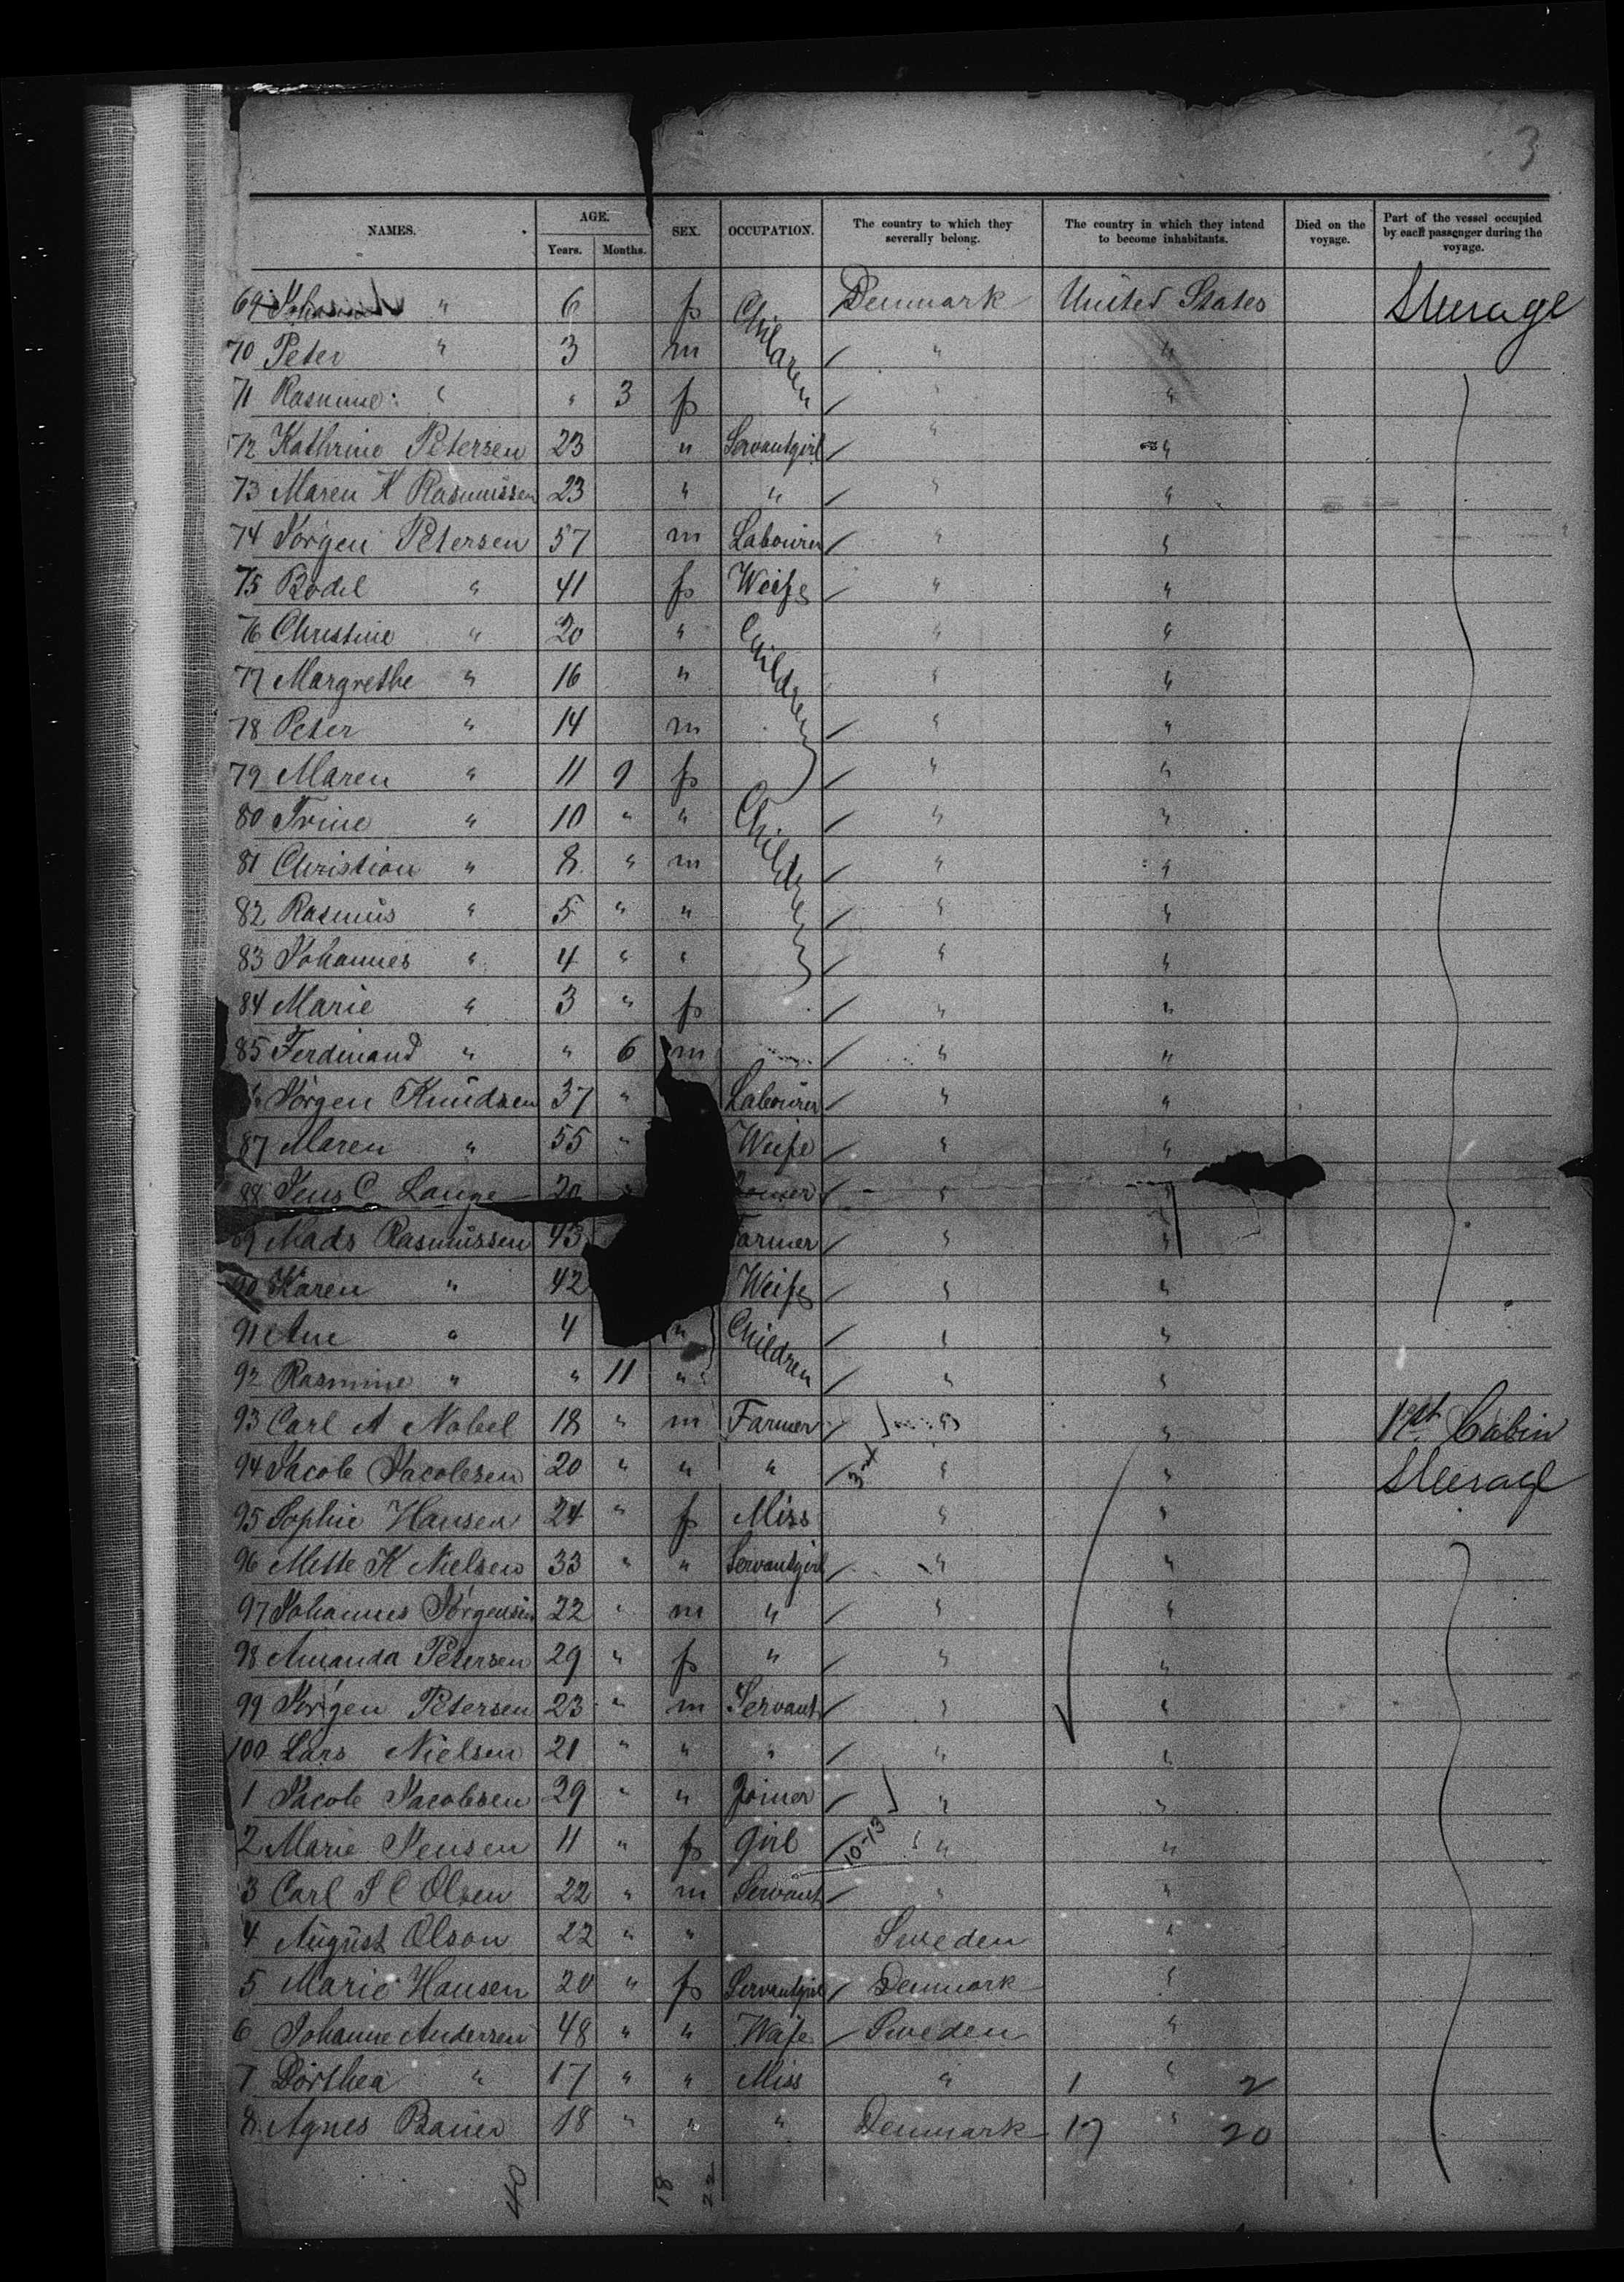 3
NAMES. AGE. Years. Months. SEX. OCCUPATION. The country to which they severally belong. The country in which they intend to become inhabitants. Died on the voyage. Part of the vessel occupied by each passenger during the voyage.
69 " 6 f Children Denmark United States Steerage
70 Peter " 3 m " "
71 Rasmine " " 3 f " "
72 Kathrine Petersen 23 " Servantgirl " "
73 Maren K Rasmussen 23 " " " "
74 Jörgen Petersen 57 m Labourer " "
75 Bodil " 41 f Weife " "
76 Christine " 20 " Children " "
77 Margrethe " 16 " " "
78 Peter " 14 m " "
79 Maren " 11 9 f " "
80 Trine " 10 " " Children " "
81 Christian " 8 " m " "
82 Rasmus " 5 " " " "
83 Johannes " 4 " " " "
84 Marie " 3 " f " "
85 Ferdinand " " 6 m " "
Jörgen Knudsen 37 " Labourer " "
87 Maren " 55 " Weife " "
88 Jens C Lange 20 " "
89 Mads Rasmussen 43 Farmer " "
90 Karen " 42 Weife " "
91 Ane " 4 " Children " "
92 Rasmine " " 11 " " "
93 Carl A Nobel 18 " m Farmer " " 1st Cabin
94 Jacob Jacobsen 20 " " " " " Steerage
95 Sophie Hansen 24 " f Miss " "
96 Mette K Nielsen 33 " " Servantgirl " "
97 Johannes Jörgensen 22 " m " " "
98 Amanda Petersen 29 " f " " "
99 Jörgen Petersen 23 " m Servant " "
100 Lars Nielsen 21 " " " " "
1 Jacob Jacobsen 29 " " Joiner " "
2 Marie Jensen 11 " f girl 10-13 " "
3 Carl J C Olsen 22 " m Servant " "
4 August Olson 22 " " Sweden "
5 Marie Hansen 20 " f Servantgirl Denmark "
6 Johanne Andersen 48 " " Wife Sweden "
7 Dorthea " 17 " " Miss " 1 " 2
8 Agnes Bauer 18 " " " Denmark 17 " 20
40 18 22